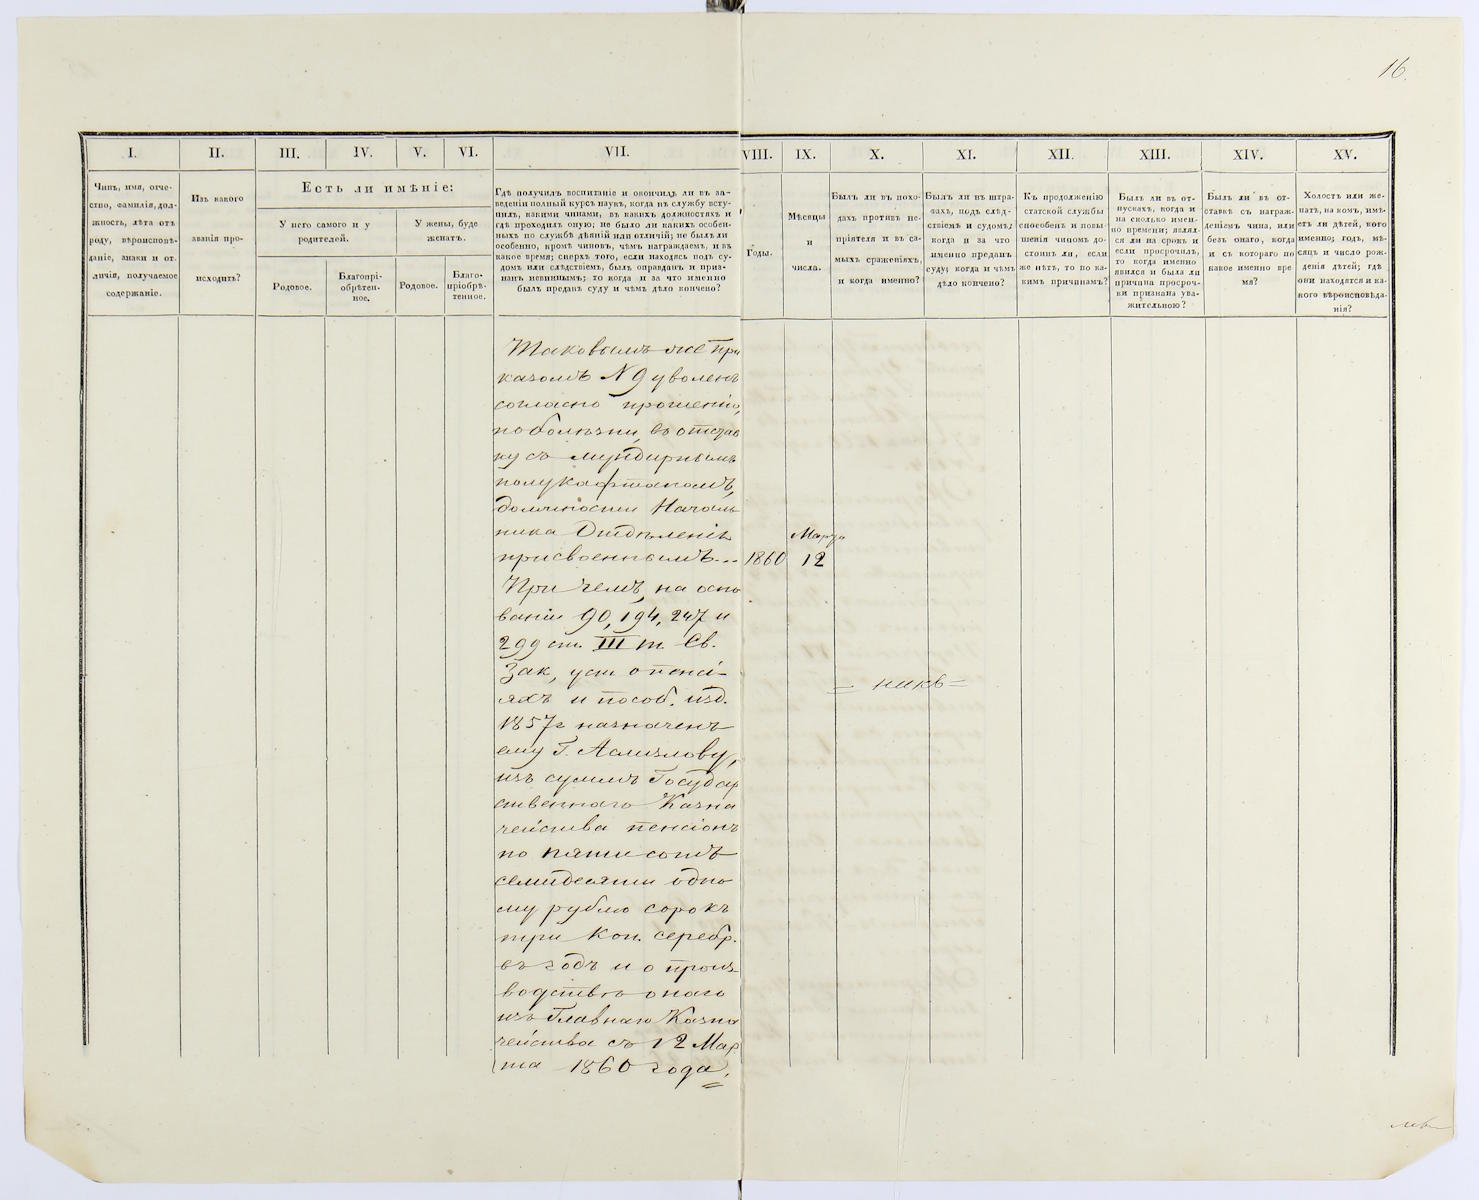 16.
I.
II.
III.
IV.
V.
VI.
VII.
VIII.
IX.
X.
XI.
XII.
XIII.
XIV.
XV.
Чинъ, имя, отче-
ство, фамилія, дол-
жность, лѣта отъ
роду, вѣроисповѣ-
даніе, знаки и от-
личія, получаемое
содержаніе.
Изъ какого
званія про-
исходитъ?
Есть ли имѣніе:
У него самого и у
родителей.
У жены, буде
женатъ.
Родовое.
Благопрі-
обрѣтен-
ное.
Родовое.
Благо-
пріобрѣ-
тенное.
Гдѣ получилъ воспитаніе и окончилъ ли въ за-
веденіи полный курсъ наукъ, когда въ службу всту-
пилъ, какими чинами, въ какихъ должностяхъ и
гдѣ проходилъ оную; не было ли какихъ особен-
ныхъ по службѣ дѣяній или отличій; не былъ ли
особенно, кромѣ чиновъ, чѣмъ награждаемъ, и въ
какое время; сверхъ того, если находясь подъ су-
домъ или слѣдствіемъ, былъ оправданъ и приз-
нанъ невиннымъ; то когда и за что именно
былъ преданъ суду и чѣмъ дѣло кончено?
Годы.
Мѣсяцы
и
числа.
Былъ ли въ похо-
дахъ противъ не-
пріятеля и въ са-
мыхъ сраженіяхъ,
и когда именно?
Былъ ли въ штра-
фахъ, подъ слѣд-
ствіемъ и судомъ;
когда и за что
именно преданъ
суду; когда и чѣмъ
дѣло кончено?
Къ продолженію
статской службы
способенъ и повы-
шенія чиномъ до-
стоинъ ли, если
же нѣтъ, то по ка-
кимъ причинамъ?
Былъ ли въ от-
пускахъ, когда и
на сколько имен-
но времени; являл-
ся ли на срокъ и
если просрочилъ,
то когда именно
явился и была ли
причина просроч-
ки признана ува-
жительною?
Былъ ли въ от-
ставкѣ съ награж-
деніемъ чина, или
безъ онаго, когда
и съ котораго по
какое именно вре-
мя?
Холостъ или же-
натъ, на комъ, имѣ-
етъ ли дѣтей, кого
именно; годъ, мѣ-
сяцъ и число рож-
денія дѣтей; гдѣ
они находятся и ка-
кого вѣроисповѣда-
нія?
Таковымъ же при
казомъ № 9 уволенъ
согласно прошенію,
по болѣзни, въ отстав
ку съ мундирнымъ
полукафтаномъ,
должности Началь
ника Отдѣленія
присвоеннымъ... 1860 Марта 12
При чемъ, на осно
ваніи 90, 194, 247 и
299 ст. III т. Св.
Зак, уст о пенсі-
яхъ и пособ. изд.
1857г назначенъ
ему Г.
изъ суммъ Государ
ственнаго Казна
чейства пенсіонъ
по пятисотъ
семидесяти одно
му рублю сорокъ
три коп. серебр.
въ годъ и о произ
водствѣ онаго
изъ Главнаго Казна
чейства съ 12 Мар
та 1860 года.
= никъ =